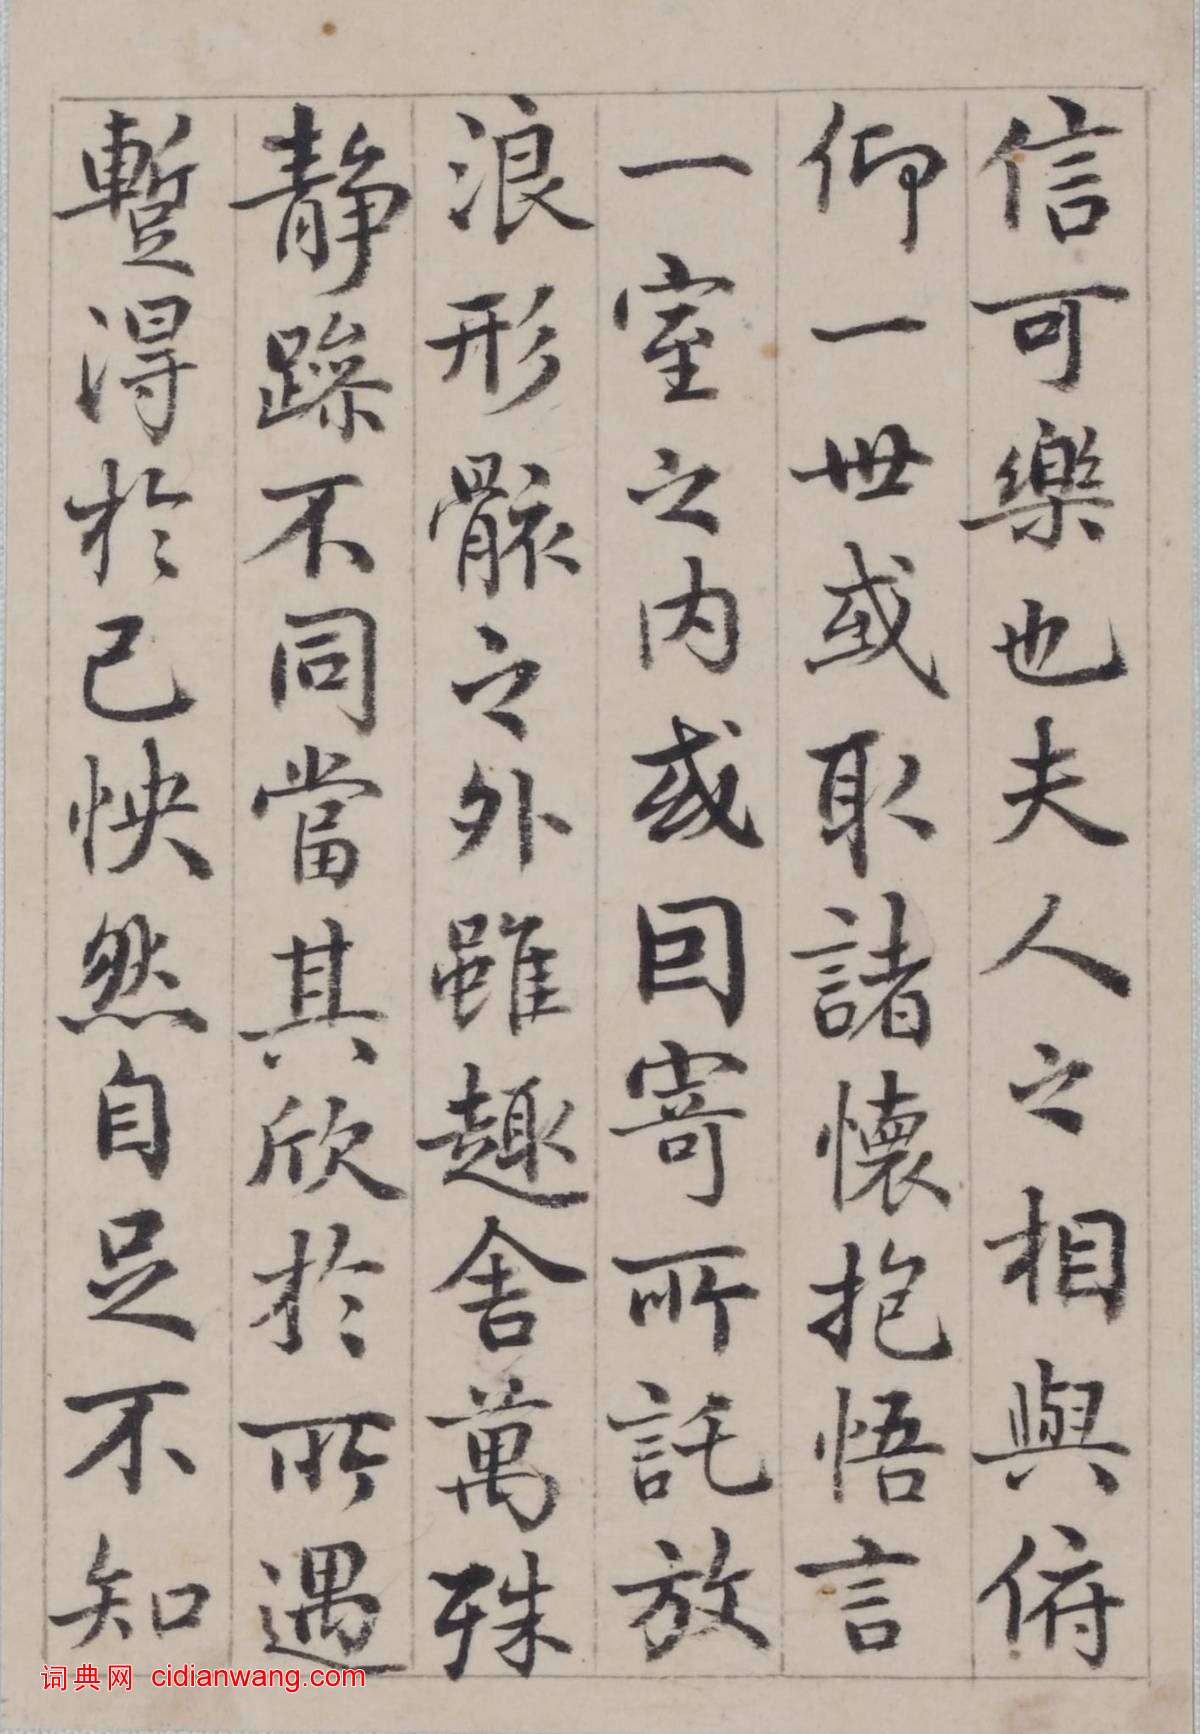 信可樂也夫人之相與俯
仰一世或取諸懷抱悟言
一室之内或囙寄所託放
浪形骸之外雖趣舍萬殊
靜躁不同當其欣於所遇
暫得於己怏然自足不知
词典网 cidianwang.com